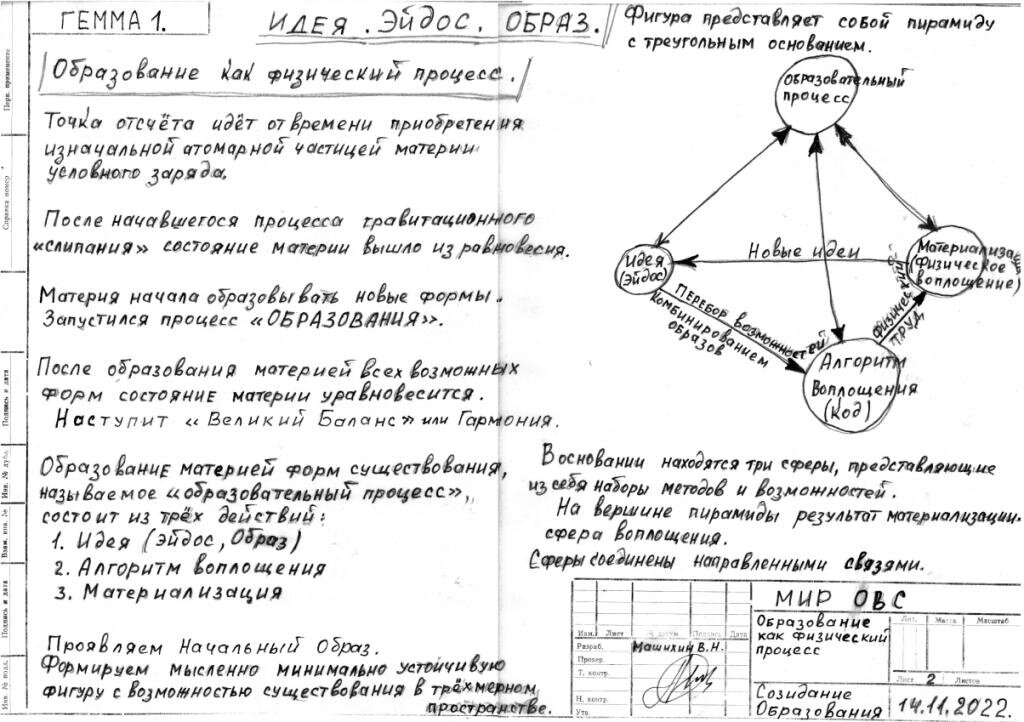 ГЕММА 1.
ИДЕЯ. ЭЙДОС. ОБРАЗ.
Образование как физический процесс.
Точка отсчёта идёт от времени приобретения
изначальной атомарной частицей материи
условного заряда.
После начавшегося процесса гравитационного
«слипания» состояние материи вышло из равновесия.
Материя начала образовывать новые формы.
Запустился процесс «ОБРАЗОВАНИЯ».
После образования материей всех возможных
форм состояние материи уравновесится.
Наступит «Великий Баланс» или Гармония.
Образование материей форм существования,
называемое «образовательный процесс»,
состоит из трёх действий:
1. Идея (Эйдос, Образ)
2. Алгоритм воплощения
3. Материализация
Проявляем Начальный Образ.
Формируем мысленно минимально устойчивую
фигуру с возможностью существования в трёхмерном
пространстве.
Фигура представляет собой пирамиду
с треугольным основанием.
Образовательный
процесс
Идея
(Эйдос)
Новые идеи
Материализа
(физическое
воплощение)
Перебор возможностей
Комбинированием
образов
Физический
труд
Алгоритм
Воплощения
(Код)
В основании находятся три сферы, представляющие
из себя наборы методов и возможностей.
На вершине пирамиды результат материализации-
сфера воплощения.
Сферы соединены направленными связями.
МИР ОВС
Образование
как физический
процесс
Созидание
Образования
Изм. Лист № докум Подпись Дата
Разраб. Машихин В.Н.
Провер.
Т. контр.
Н. контр.
Утв.
Лит. Масса Масштаб
Лист 2 Листов
14.11.2022.
Перв. применение
Справка номер
Подпись и дата
Инв. № дубл.
Взам. инв. №
Подпись и дата
Инв. № подл.